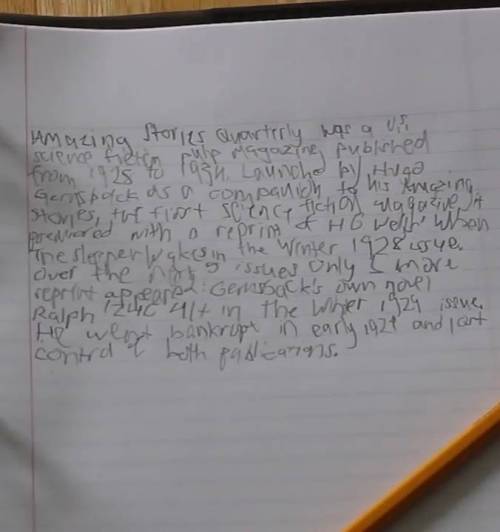 Amazing Stories Quarterly was a U.S.
science fiction pulp magazine published
from 1928 to 1934. Launched by Hugo
Gernsback as a companion to his Amazing
Stories, the first science fiction magazine, it
premiered with a reprint of HG Wells' When
The Sleeper Wakes in the Winter 1928 issue.
Over the next issues only 1 more
reprint appeared: Gernsback's own novel
Ralph 124C 41+ in the Winter 1929 issue.
He went bankrupt in early 1929 and lost
control of both publications.